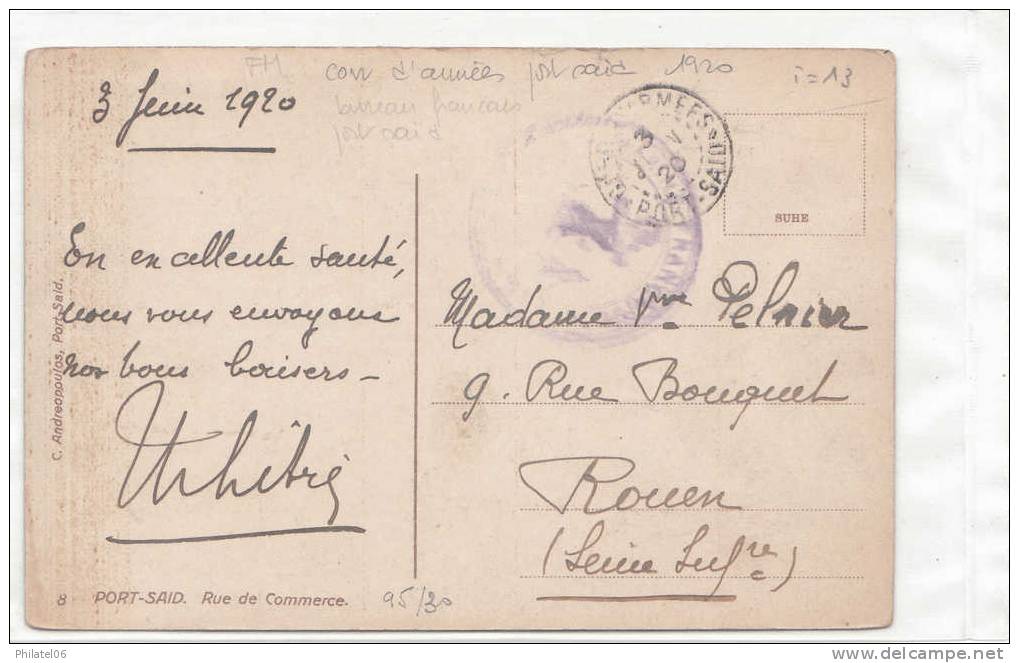 FM corr d'armées port said 1920 i=13
bureau francais
port said
3 Juin 1920
ARMEES
3
20
PORT-SAID
SUHE
En excellente santé,
nous vous envoyons
nos bons baisers -
Madame Vve
9. Rue Bouquet
Rouen
(Seine Infre)
C. Andreopoulos, Port-Said.
8 PORT-SAID. Rue de Commerce.
95/30
Philatel06